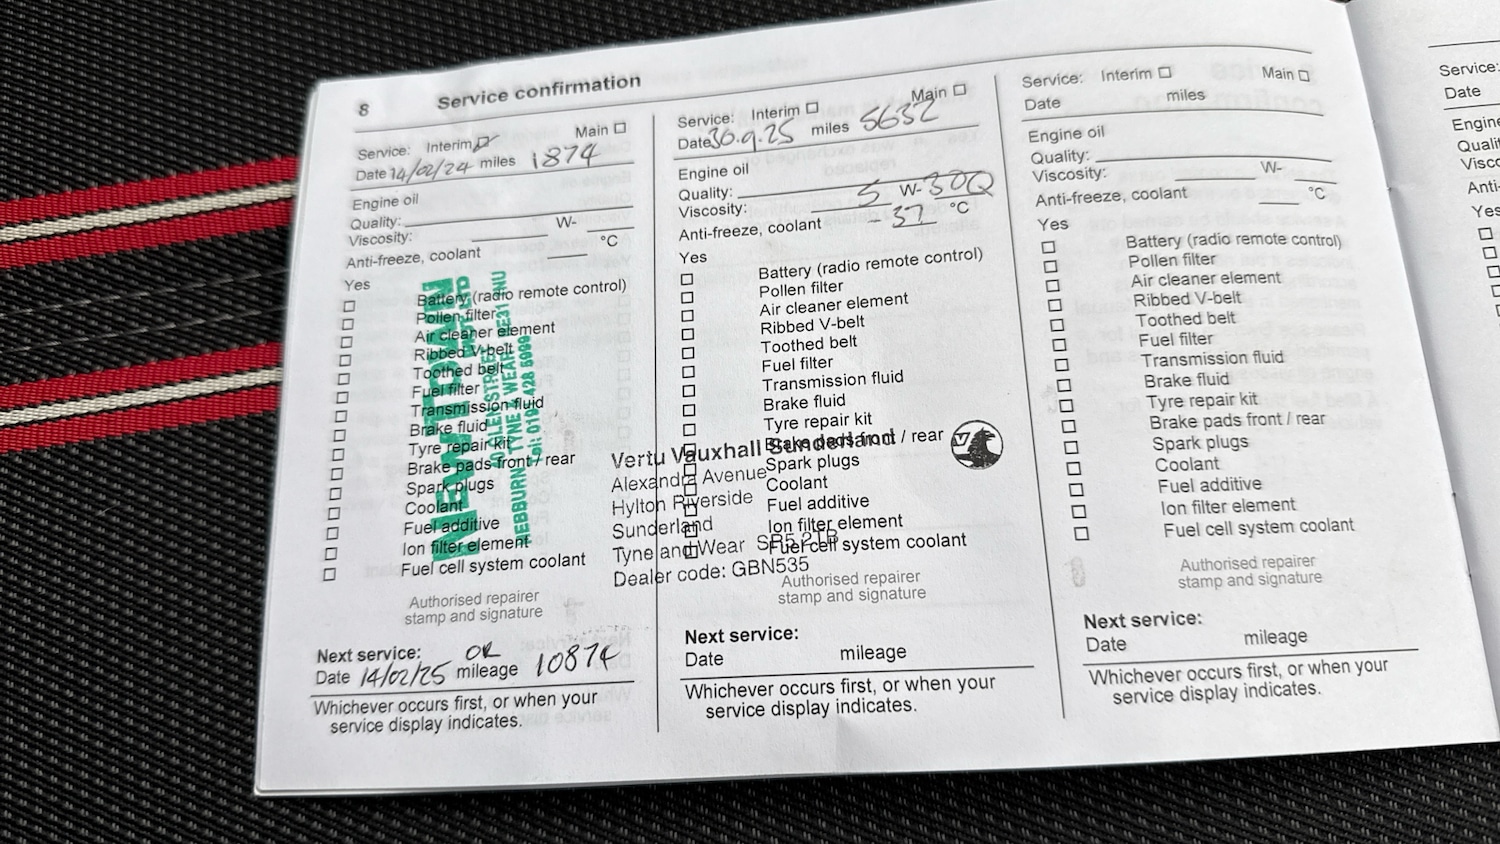 8
Service confirmation
Service: Interim Main
Date 14/02/24 miles 1874
Engine oil
Quality:
Viscosity: W-
Anti-freeze, coolant °C
Yes
Battery (radio remote control)
Pollen filter
Air cleaner element
Ribbed V-belt
Toothed belt
Fuel filter
Transmission fluid
Brake fluid
Tyre repair kit
Brake pads front / rear
Spark plugs
Coolant
Fuel additive
Ion filter element
Fuel cell system coolant
Authorised repairer
stamp and signature
Next service: OR
Date 14/02/25 mileage 10874
Whichever occurs first, or when your
service display indicates.
Service: Interim Main
Date 30.9.25 miles 5632
Engine oil
Quality:
Viscosity: 5 W-30Q
Anti-freeze, coolant -37 °C
Yes
Battery (radio remote control)
Pollen filter
Air cleaner element
Ribbed V-belt
Toothed belt
Fuel filter
Transmission fluid
Brake fluid
Tyre repair kit
Brake pads front / rear
Spark plugs
Coolant
Fuel additive
Ion filter element
Fuel cell system coolant
Vertu Vauxhall Sunderland
Alexandra Avenue
Hylton Riverside
Sunderland
Tyne and Wear SR5 2TB
Dealer code: GBN535
Authorised repairer
stamp and signature
Next service:
Date mileage
Whichever occurs first, or when your
service display indicates.
Service: Interim Main
Date miles
Engine oil
Quality:
Viscosity: W-
Anti-freeze, coolant °C
Yes
Battery (radio remote control)
Pollen filter
Air cleaner element
Ribbed V-belt
Toothed belt
Fuel filter
Transmission fluid
Brake fluid
Tyre repair kit
Brake pads front / rear
Spark plugs
Coolant
Fuel additive
Ion filter element
Fuel cell system coolant
Authorised repairer
stamp and signature
Next service:
Date mileage
Whichever occurs first, or when your
service display indicates.
Service:
Date